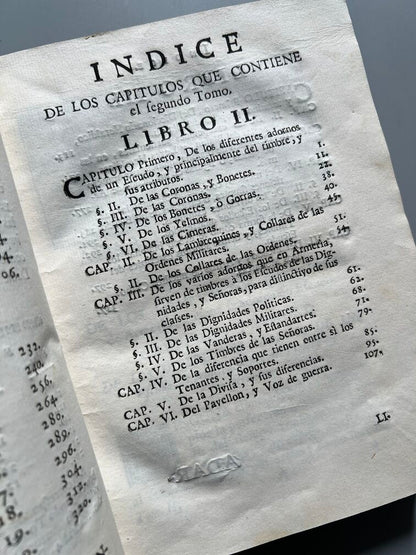 INDICE
DE LOS CAPITULOS QUE CONTIENE
el segundo Tomo.
LIBRO II.
CAPITULO Primero, De los diferentes adornos
de un Escudo, y principalmente del timbre, y
sus atributos. 1.
§. II. De las Coronas, y Bonetes. 11.
§. III. De las Coronas. 22.
§. IV. De los Bonetes, ò Gorras. 38.
§. V. De los Yelmos. 40.
§. VI. De las Cimeras. 45.
CAP. II. De los Lambrequines, y Collares de las
Ordenes Militares. 51.
§. II. De los Collares de las Ordenes. 54.
CAP. III. De los varios adornos que en Armeria,
sirven de timbres à los Escudos de las Dig-
nidades, y Señoras, para distinctivo de sus
clases. 61.
§. II. De las Dignidades Politicas. 62.
§. III. De las Dignidades Militares. 68.
§. IV. De las Vanderas, y Estandartes. 71.
§. V. De los Timbres de las Señoras. 79.
CAP. IV. De la diferencia que tienen entre sì los
Tenantes, y Soportes. 85.
CAP. V. De la Divisa, y sus diferencias. 95.
CAP. VI. Del Pavellon, y Voz de guerra. 107.
LI.
232.
240.
256.
264.
289.
296.
304.
312.
320.